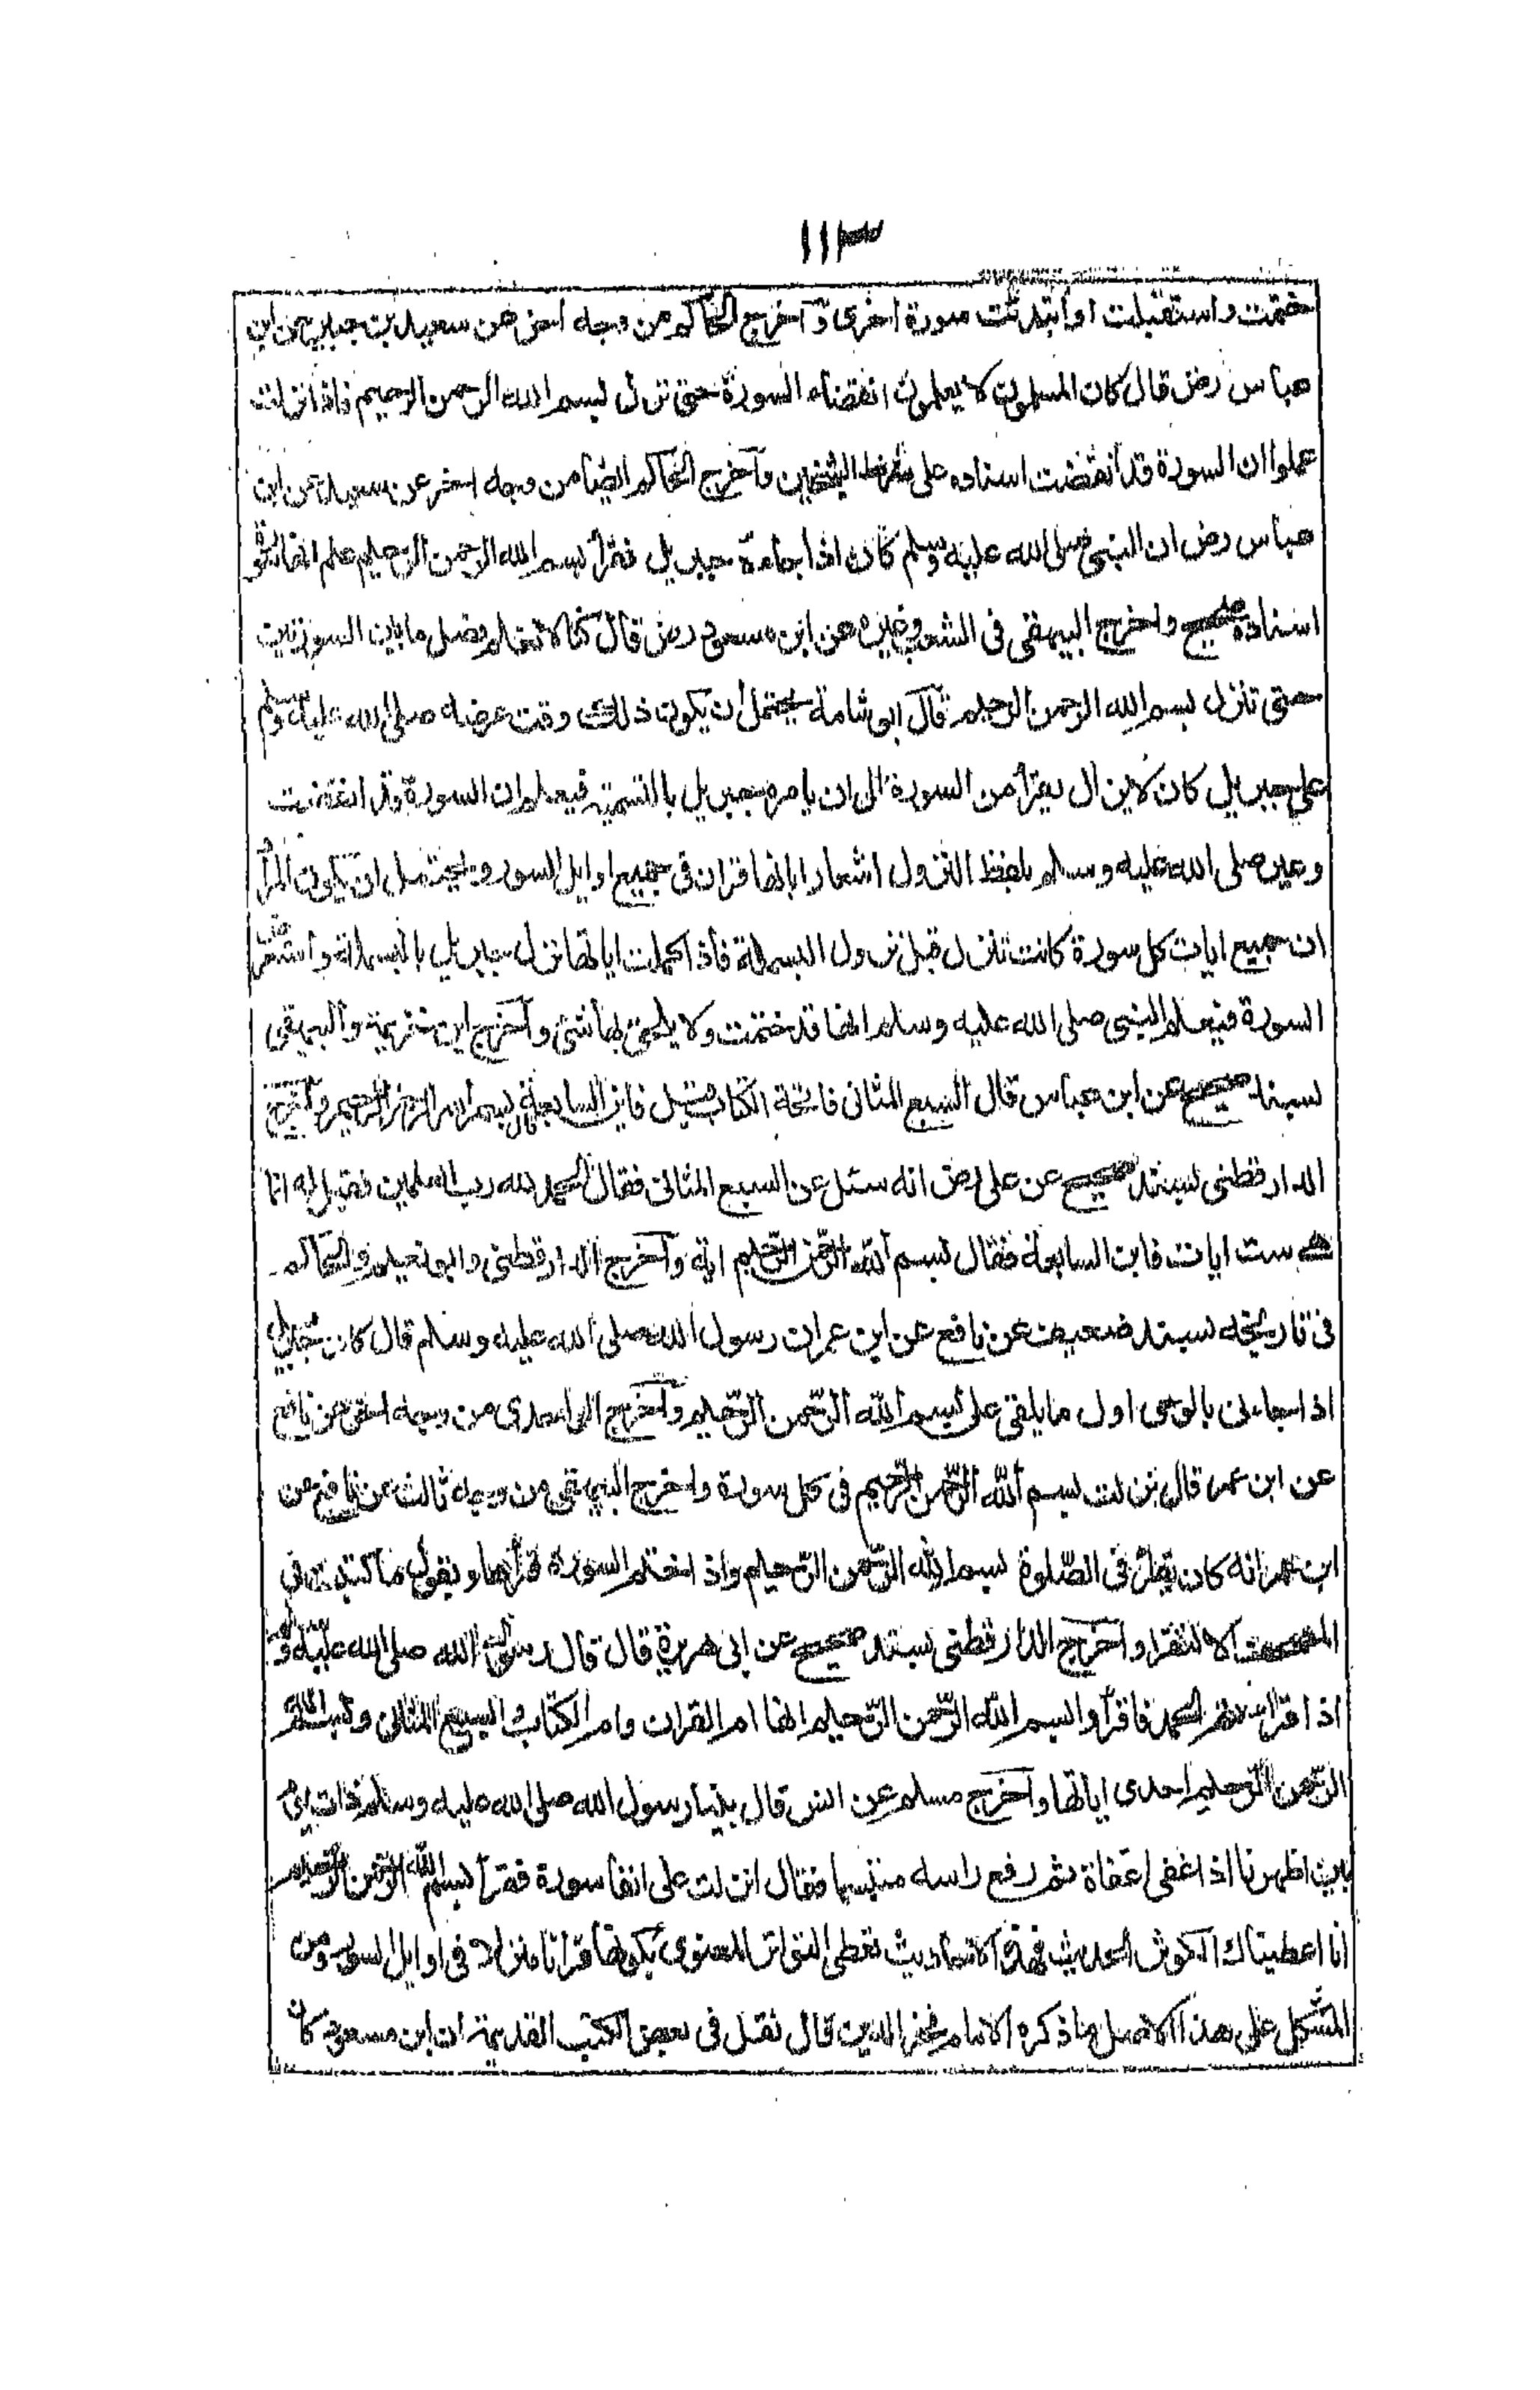 ١١٣
ختمت واستقبلت او ابتدئت سورة اخرى وآخرج الحاكم من وجه اخر عن سعيد بن جبير عن ابن
عباس رض قال كان المسلمون لا يعلمون انقضاء السورة حتى تنزل بسم الله الرحمن الرحيم فاذا نزلت
علموا ان السورة قد انقضت اسناده على شرط الشيخين وآخرج الحاكم ايضا من وجه اخر عن سعيد عن ابن
عباس رض ان النبي صلى الله عليه وسلم كان اذا جاءه جبريل فقرأ بسم الله الرحمن الرحيم علم انها سورة
اسناده صحيح واخرج البيهقي فى الشعب وغيره عن ابن مسعود رض قال كنا لا نعلم فصل ما بين السورتين
حتى تنزل بسم الله الرحمن الرحيم قال ابو شامة يحتمل أن يكون ذلك وقت عرضه صلى الله عليه وسلم
على جبريل كان لا يزال يقرأ من السورة الى ان يامره جبريل بالتسمية فيعلم ان السورة قد انقضت
وعبر صلى الله عليه وسلم بلفظ النزول اشعارا بانها قران فى جميع اوايل السور ويحتمل ان يكون المراد
ان جميع ايات كل سورة كانت تنزل قبل نزول البسملة فاذا كملت اياتها نزل جبريل بالبسملة واستعرض
السورة فيعلم النبى صلى الله عليه وسلم انها قد ختمت ولا يلحق بها شئ وآخرج ابن خزيمة والبيهقى
بسند صحيح عن ابن عباس قال السبع المثانى فاتحة الكتاب قيل فاين السابعة قال بسم الله الرحمن الرحيم وآخرج
الدارقطنى بسند صحيح عن على رض انه سئل عن السبع المثانى فقال الحمد لله رب العلمين فقيل له انما
هى ست ايات فاين السابعة فقال بسم الله الرحمن الرحيم اية وآخرج الدارقطنى وابو نعيم والحاكم
فى تاريخه بسند ضعيف عن نافع عن ابن عمر ان رسول الله صلى الله عليه وسلم قال كان جبريل
اذا جاءنى بالوحى اول ما يلقى على بسم الله الرحمن الرحيم وآخرج الواحدى من وجه اخر عن نافع
عن ابن عمر قال نزلت بسم الله الرحمن الرحيم فى كل سورة واخرج البيهقى من وجه ثالث عن نافع عن
ابن عمر انه كان يقرأ فى الصلوة بسم الله الرحمن الرحيم واذا ختم السورة قرأها ويقول ما كتبت فى
المصحف الا لتقرا وآخرج الدارقطنى بسند صحيح عن ابى هريرة قال قال رسول الله صلى الله عليه وسلم
اذا قرأتم الحمد فاقرأوا بسم الله الرحمن الرحيم انها ام القران وام الكتاب والسبع المثانى وبسم الله
الرحمن الرحيم احدى اياتها وآخرج مسلم عن انس قال بينا رسول الله صلى الله عليه وسلم ذات يوم
بين اظهرنا اذ اغفى اغفاة ثم رفع راسه متبسما فقال انزلت على انفا سورة فقرأ بسم الله الرحمن الرحيم
انا اعطيناك الكوثر الحديث فهذه الاحاديث تعطى التواتر المعنوى بكونها قرانا منزلا فى اوايل السور ومن
المشكل على هذا الاصل ما ذكره الامام فخر الدين قال نقل فى بعض الكتب القديمة ان ابن مسعود كان